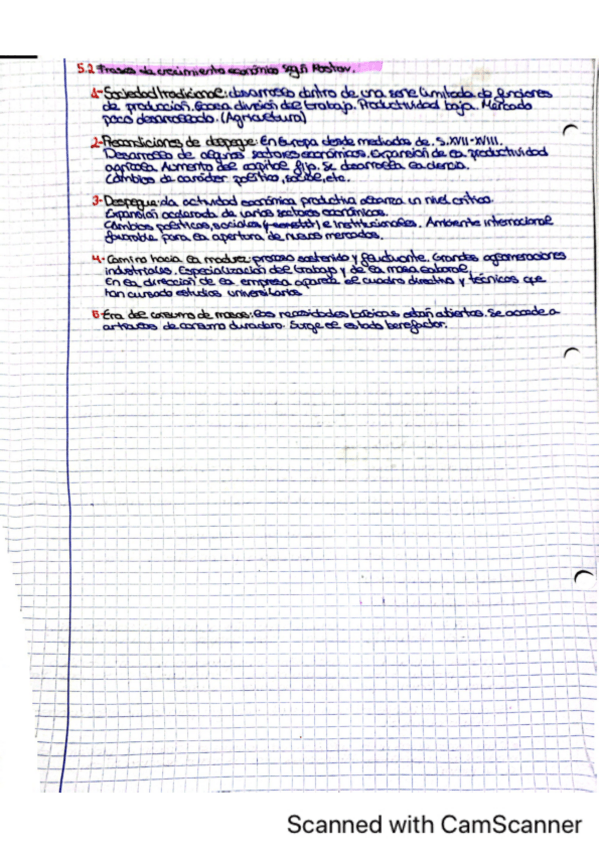 5.2 Frases da crecimiento económico sgñ Rostow.
1-Sociedad tradicional: desarrollo dentro de una serie limitada de funciones
de producción. Escasa división del trabajo. Productividad baja. Mercado
poco desarrollado. (Agricultura)
2-Precondiciones de despegue: En Europa desde mediados de. S.XVII-XVIII.
Desarrollo de algunos sectores económicos. Expansión de la productividad
agrícola. Aumento del capital fijo. Se desarrolla la ciencia.
Cambios de carácter político, social, etc.
3-Despegue: la actividad económica productiva alcanza un nivel crítico.
Expansión acelerada de varios sectores económicos.
Cambios políticos, sociales e Institucionales. Ambiente internacional
favorable para la apertura de nuevos mercados.
4-Camino hacia la madurez: proceso sostenido y fluctuante. Grandes aglomeraciones
industriales. Especialización del trabajo y de la masa laboral.
En la dirección de la empresa aparece el cuadro directivo y técnicos que
han cursado estudios universitarios
5 Era del consumo de masas: las necesidades básicas están abiertas. Se accede a
artículos de consumo duradero. Surge el estado benefactor.
Scanned with CamScanner